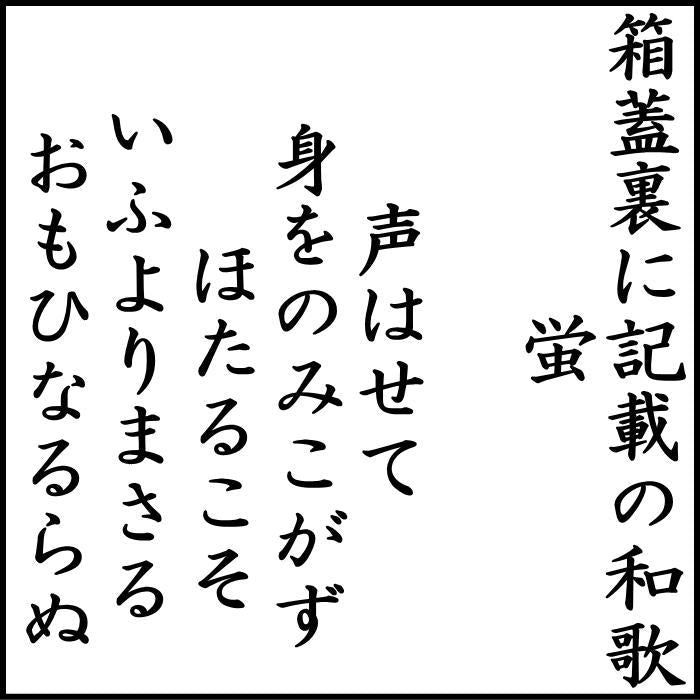 箱蓋裏に記載の和歌
蛍
声はせて
身をのみこがず
ほたるこそ
いふよりまさる
おもひなるらぬ